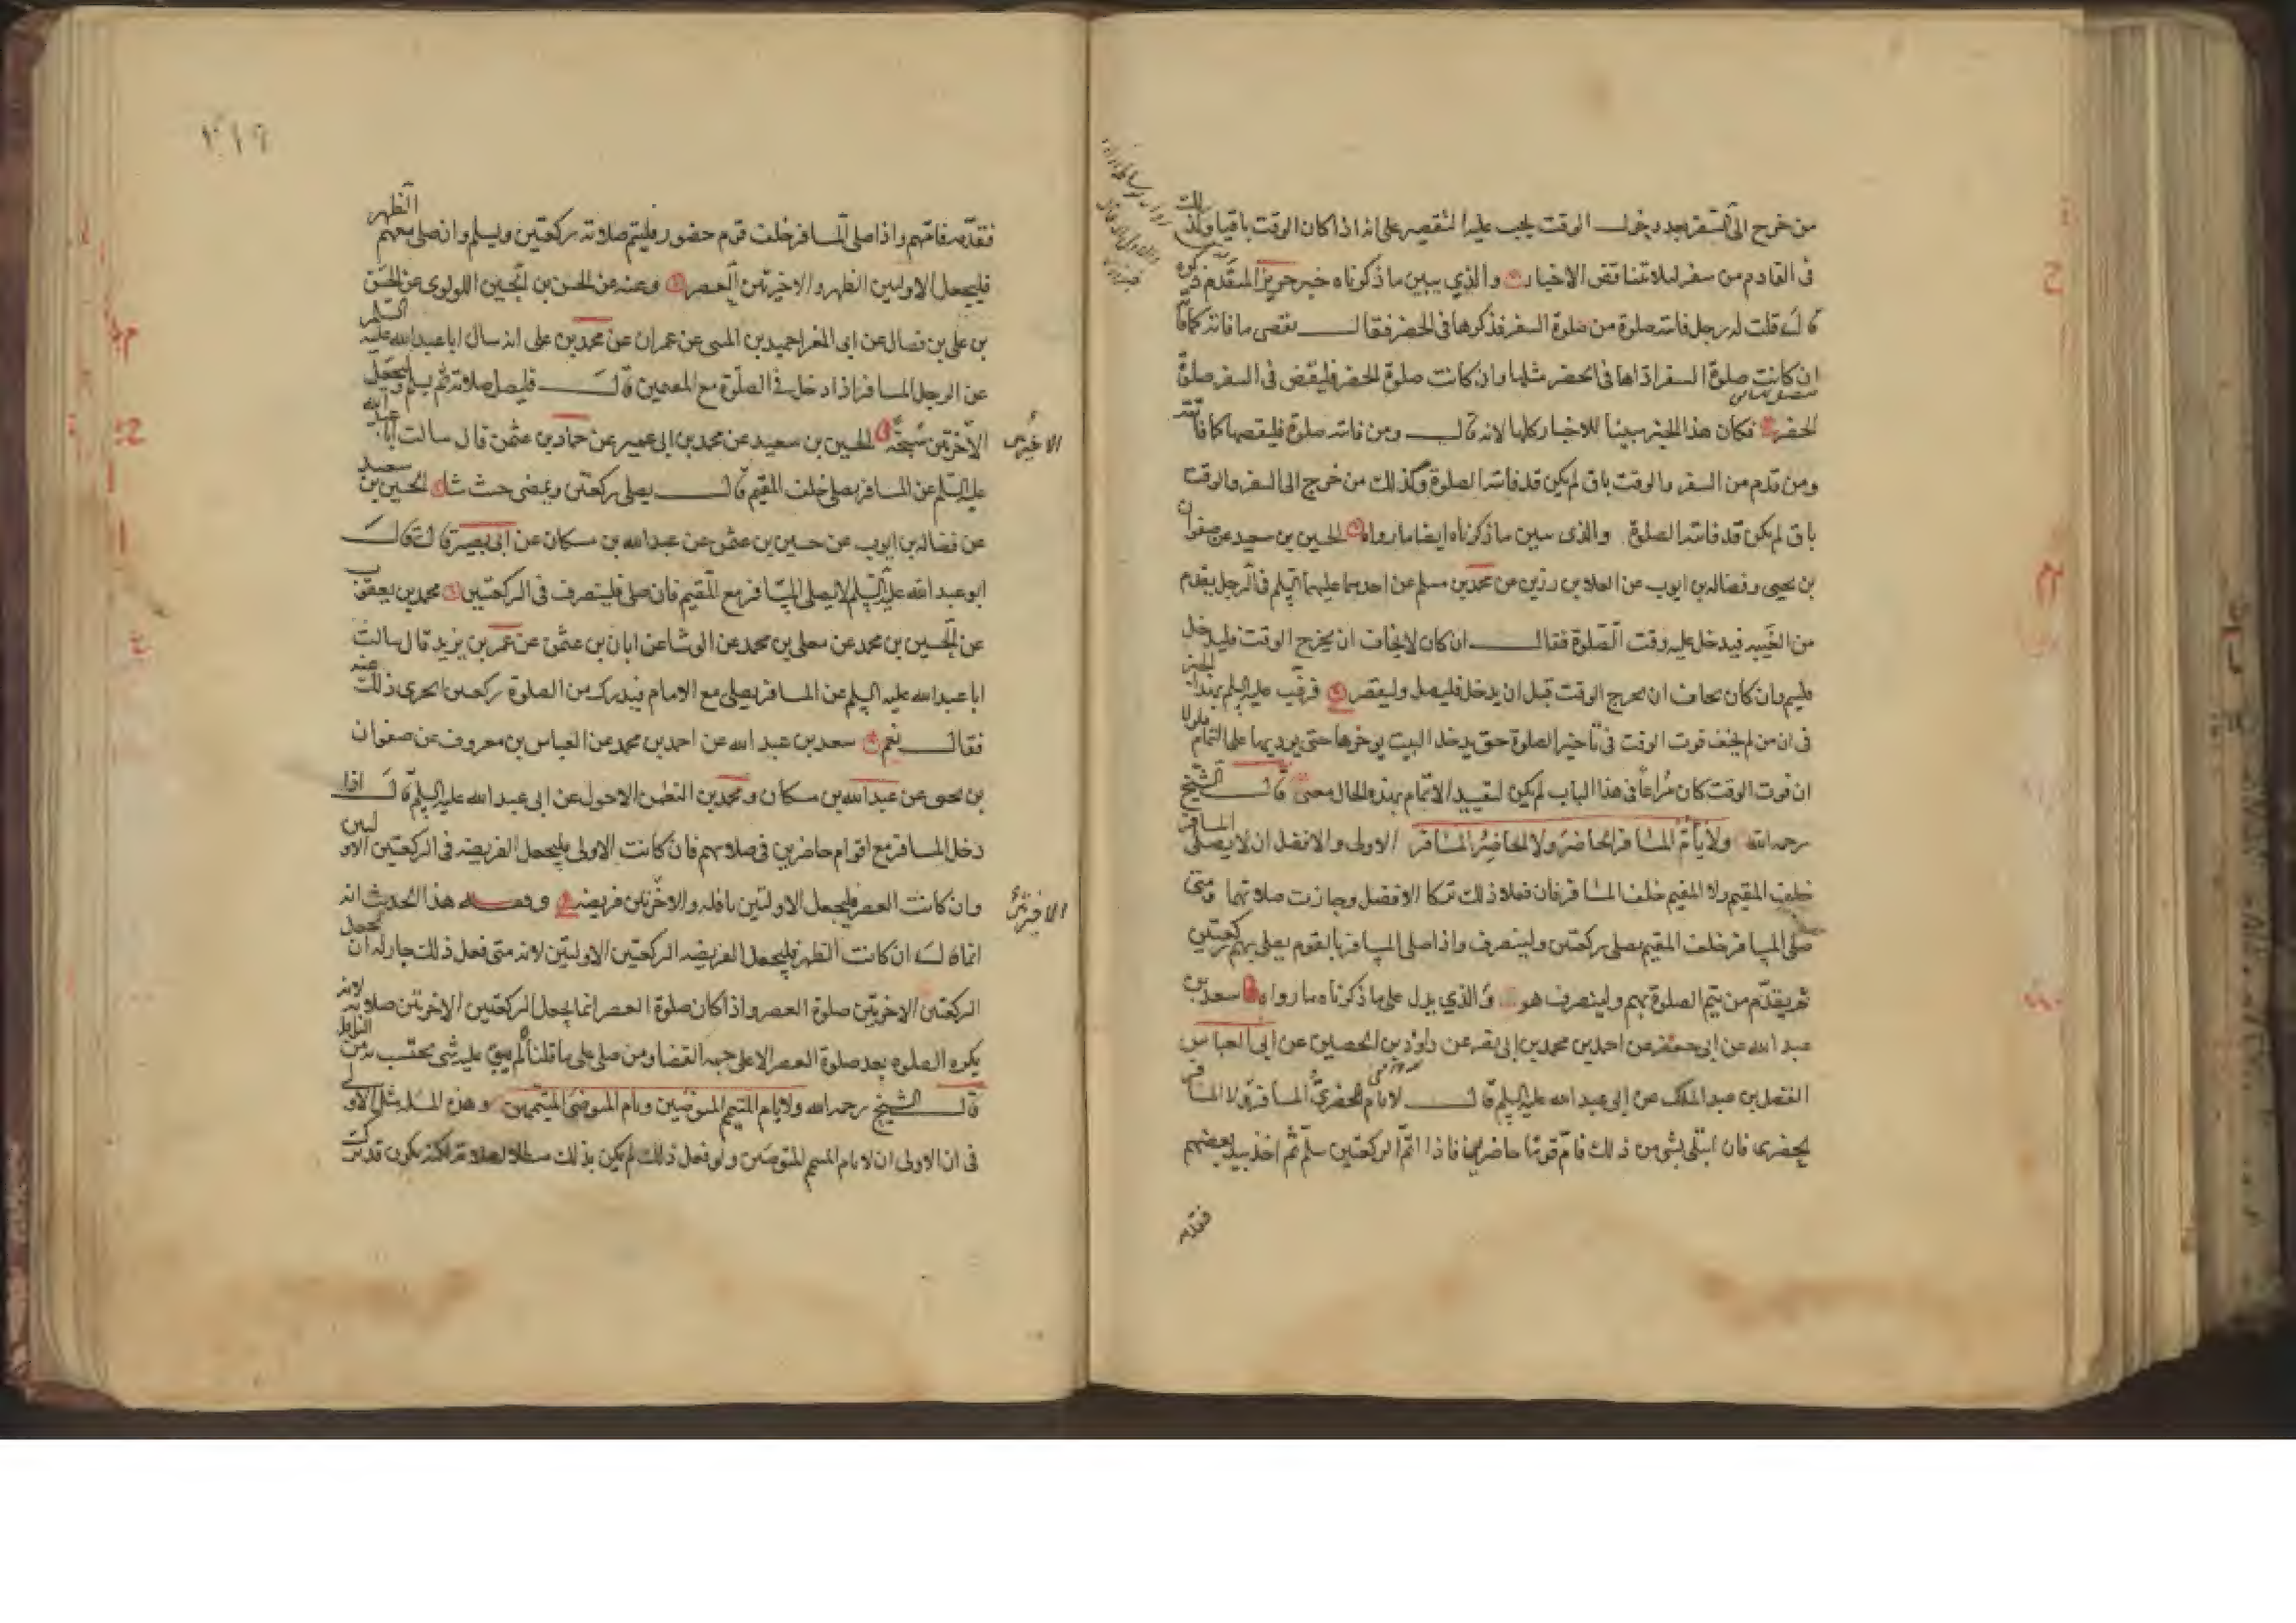 من خرج الى السفر بعد دخول الوقت يجب عليه التقصير على انه اذا كان الوقت باقيا وكذلك
فى القادم من سفر لئلا تتناقض الاخبار والذي يبين ما ذكرناه خبر حريز المتقدم ذكره
قال قلت له رجل فاتته صلوة من صلوة السفر فذكرها فى الحضر فقال يقضى ما فاته كما فاته
ان كانت صلوة السفر اداها فى الحضر مثلها وان كانت صلوة الحضر فليقض فى السفر صلوة
الحضر فكان هذا الخبر مبينا للاخبار كلها لانه قال ومن فاتته صلوة فليقضها كما فاتته
ومن قدم من السفر والوقت باق لم يكن قد فاتته الصلوة وكذلك من خرج الى السفر والوقت
باق لم يكن قد فاتته الصلوة والذى يبين ما ذكرناه ايضا ما رواه الحسين بن سعيد عن صفوان
بن يحيى وفضاله بن ايوب عن العلا بن رزين عن محمد بن مسلم عن احدهما عليهما السلم فى الرجل يقدم
من الغيبه فيدخل عليه وقت الصلوة فقال ان كان لا يخاف ان يخرج الوقت فليدخل
فليتم وان كان يخاف ان يخرج الوقت قبل ان يدخل فليصل وليقصر فرتب عليه السلم بهذا الخبر
فى ان من لم يخف فوت الوقت فى تأخير الصلوة حتى يدخل البيت يوخرها حتى يوديها على التمام فلولا
ان فوت الوقت كان مراعا فى هذا الباب لم يكن لتقييد الاتمام بهذه الحال معنى قال الشيخ
رحمه الله ولا يأم المسافر الحاضر ولا الحاضر المسافر الاولى والافضل ان لا يصلى المسافر
خلف المقيم ولا المقيم خلف المسافر فان فعلا ذلك تركا الافضل وجازت صلاتهما ومتى
صلى المسافر خلف المقيم يصلى ركعتين ولينصرف واذا صلى المسافر بالقوم يصلى بهم ركعتين
ثم يقدم من يتم الصلوة بهم ولينصرف هو والذي يدل على ما ذكرناه ما رواه سعد بن
عبد الله عن ابى جعفر عن احمد بن محمد بن ابى نصر عن داود بن الحصين عن ابى العباس
الفضل بن عبد الملك عن ابى عبد الله عليه السلم قال لا يام الحضرى المسافر ولا المسافر
الحضرى فان ابتلى بشى من ذلك فام قوما حاضرين فاذا اتم الركعتين سلم ثم اخذ بيد بعضهم
فقدمه
٣١٩
فقدمه فامهم واذا صلى المسافر خلف قوم حضور فليتم صلاته ركعتين ويسلم وان صلى معهم الظهر
فليجعل الاوليين الظهر والاخيرتين العصر وعنه عن الحسن بن الحسين اللولوى عن الحسن
بن على بن فضال عن ابى المغرا حميد بن المثنى عن عمران عن محمد بن على انه سال ابا عبد الله عليه السلم
عن الرجل المسافر اذا دخل فى الصلوة مع المقيمين قال فليصل صلاته ثم يسلم وليجعل
الاخيرتين سبحة الحسين بن سعيد عن محمد بن ابى عمير عن حماد بن عثمن قال سالت ابا عبد الله
الاخيرتين
عليه السلم عن المسافر يصلى خلف المقيم قال يصلى ركعتين ويمضى حيث شا الحسين بن سعيد
عن فضاله بن ايوب عن حسين بن عثمن عن عبد الله بن مسكان عن ابى بصير قال قال
ابو عبد الله عليه السلم لا يصلى المسافر مع المقيم فان صلى فلينصرف فى الركعتين محمد بن يعقوب
عن الحسين بن محمد عن معلى بن محمد عن الوشا عن ابان بن عثمن عن عمر بن يزيد قال سالت
ابا عبد الله عليه السلم عن المسافر يصلى مع الامام فيدرك من الصلوة ركعتين ايجزى ذلك عنه
فقال نعم سعد بن عبد الله عن احمد بن محمد عن العباس بن معروف عن صفوان
بن يحيى عن عبد الله بن مسكان ومحمد بن النعمن الاحول عن ابى عبد الله عليه السلم قال اذا
دخل المسافر مع اقوام حاضرين فى صلاتهم فان كانت الاولى فليجعل الفريضه فى الركعتين الاوليين
وان كانت العصر فليجعل الاوليين نافله والاخيرتين فريضه وفقه هذا الحديث انه
الاخيرتين
انما قال ان كانت الظهر فليجعل الفريضه الركعتين الاوليين لانه متى فعل ذلك جاز له ان يجعل
الركعتين الاخيرتين صلوة العصر واذا كان صلوة العصر انما يجعل الركعتين الاخيرتين صلاته لانه
يكره الصلوه بعد صلوة العصر الا على جهه القضا ومن صلى على ما قلناه لم يبق عليه شى يحتسب به من النوافل
قال الشيخ رحمه الله ولا يام المتيمم المتوضين ويام المتوضى المتيممين وهذه المسله مثل الاولى
فى ان الاولى ان لا يام المتيمم المتوضين ولو فعل ذلك لم يكن بذلك مبطلا لصلاته لكنه يكون قد ترك